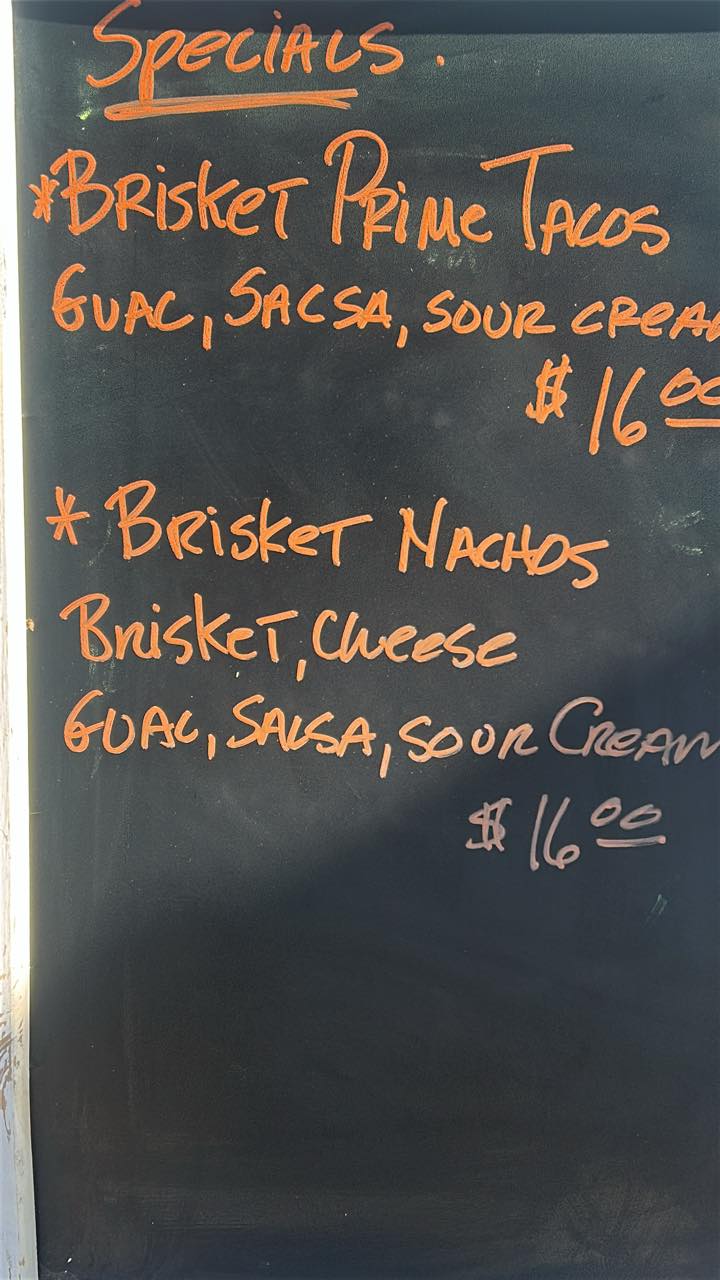 Specials.
*Brisket Prime Tacos
Guac, Sacsa, sour cream
$16.00
* Brisket Nachos
Brisket, Cheese
Guac, Salsa, sour Cream
$16.00